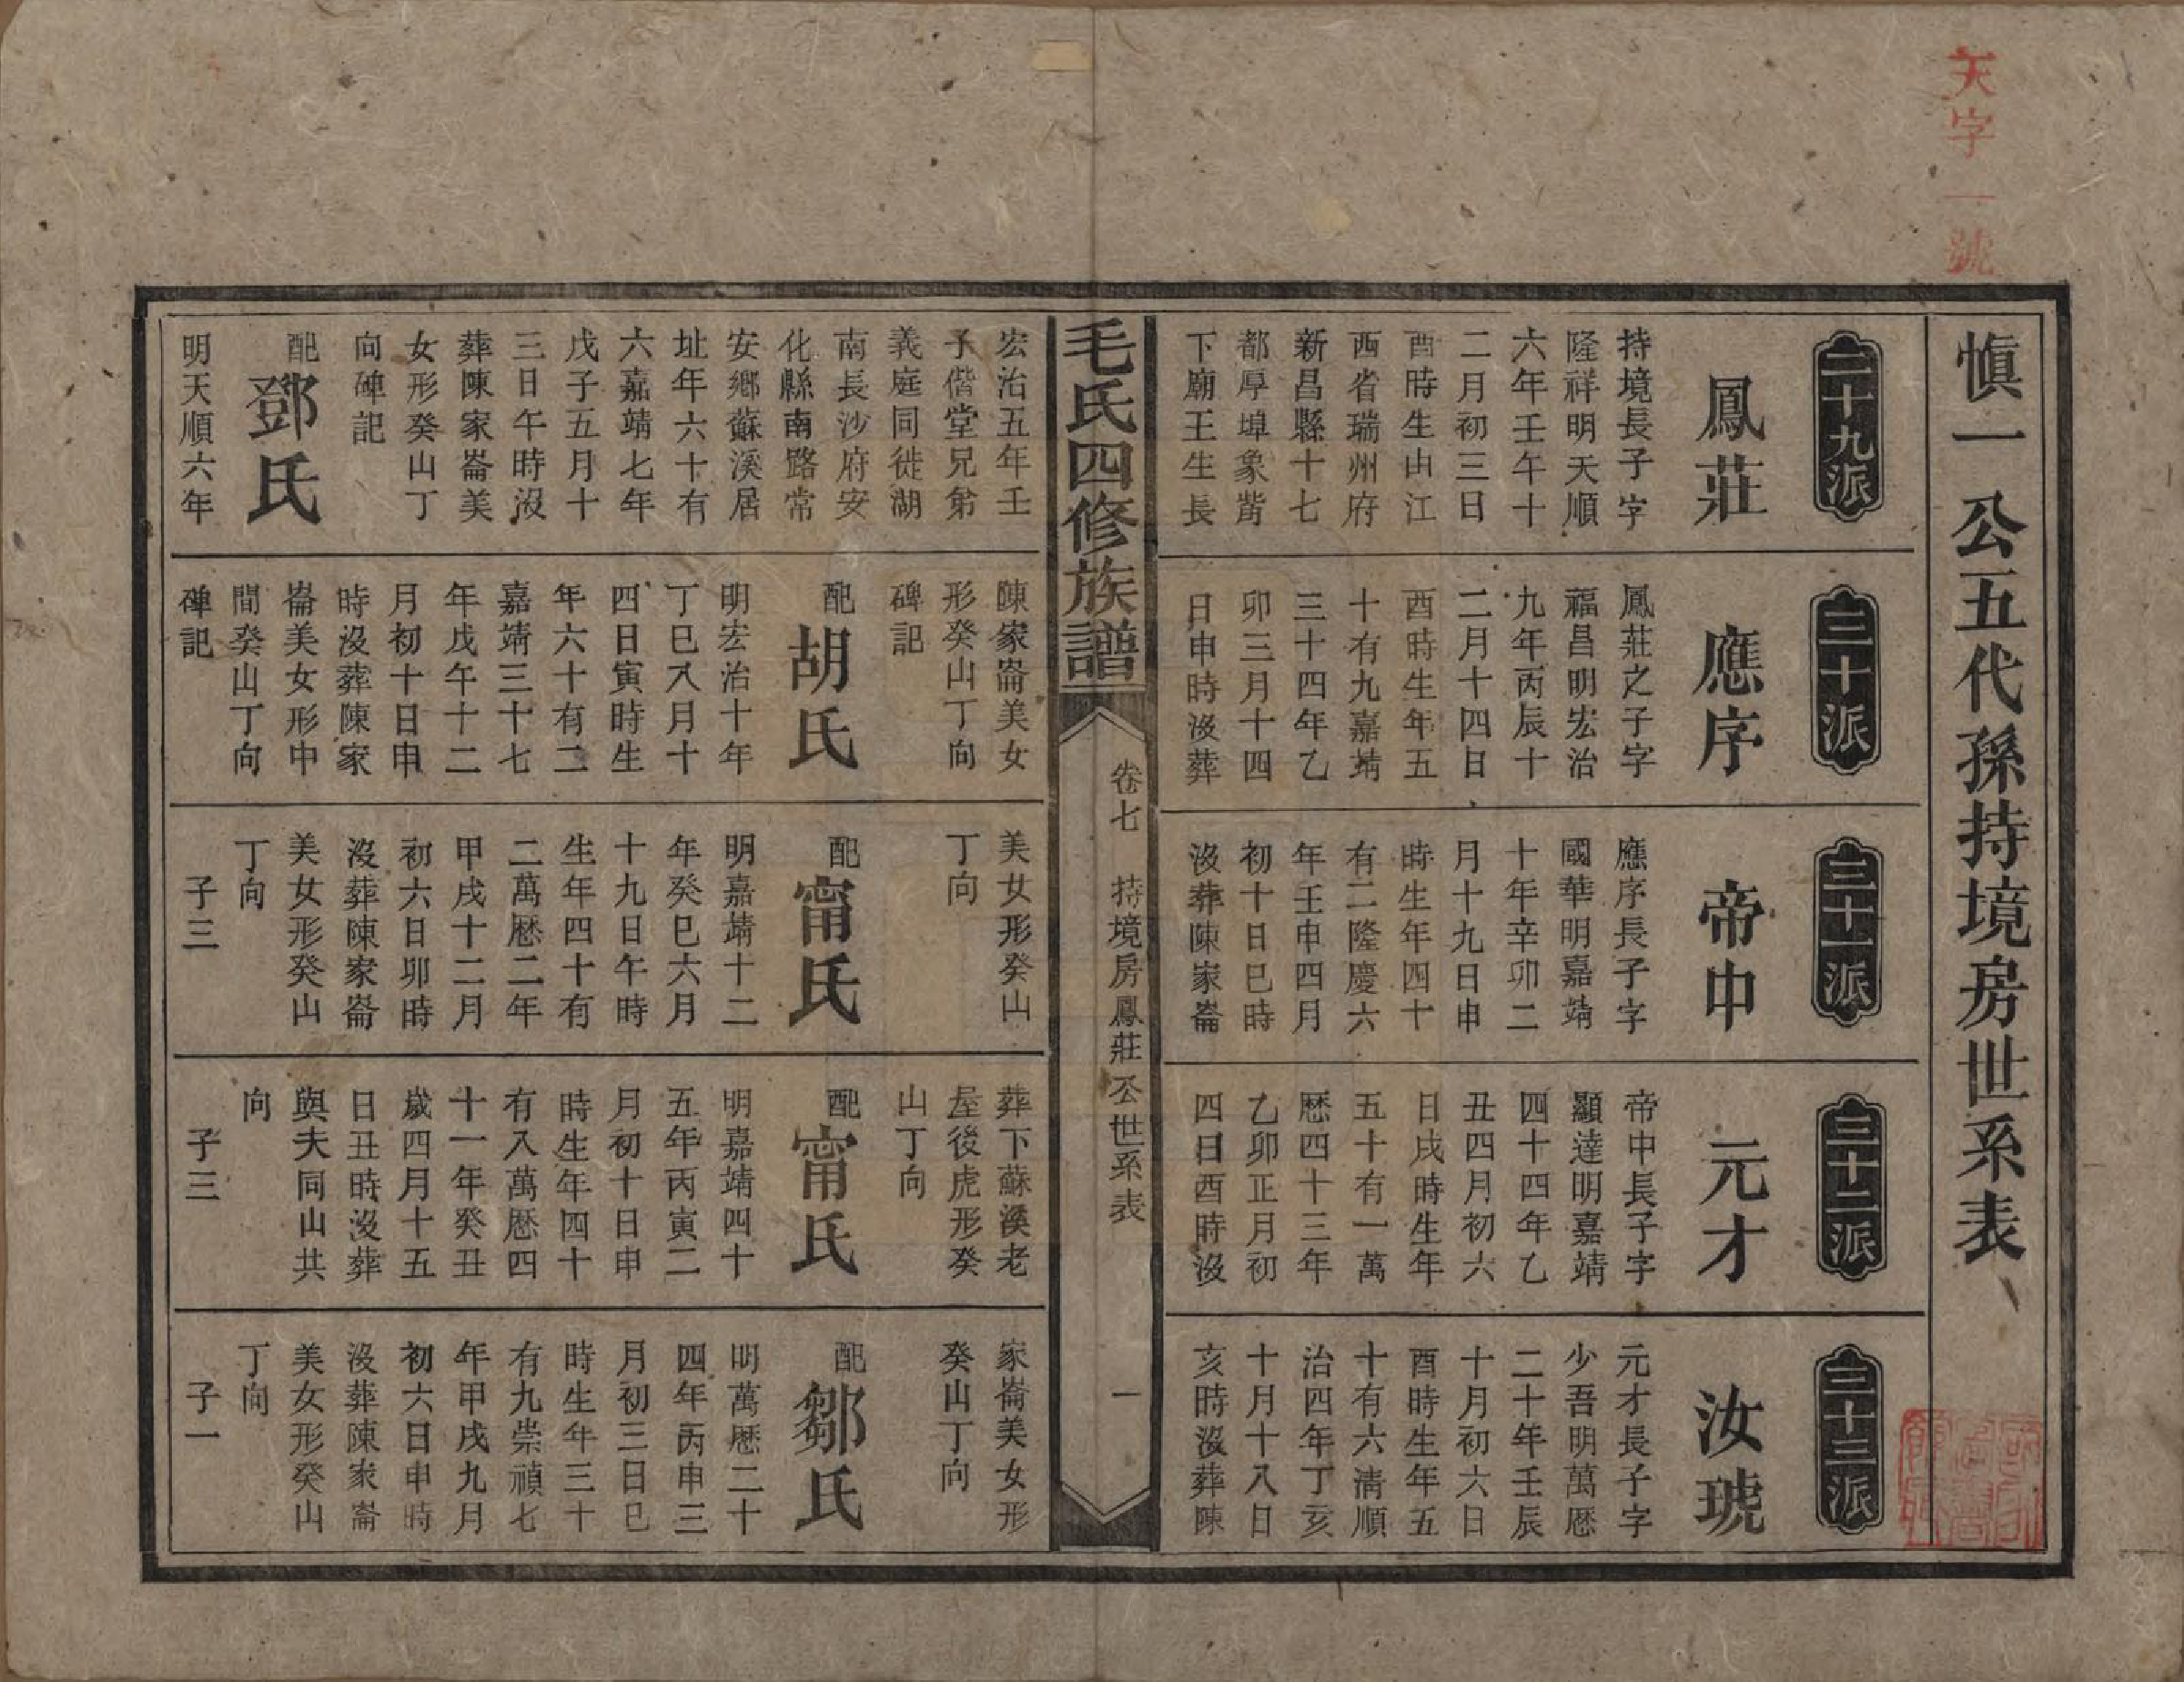 天字一號
愼一公五代孫持境房世系表
二十九派
鳳莊
持境長子字
隆祥明天順
六年壬午十
二月初三日
酉時生由江
西省瑞州府
新昌縣十七
都厚埠象觜
下廟王生長
三十派
應序
鳳莊之子字
福昌明宏治
九年丙辰十
二月十四日
酉時生年五
十有九嘉靖
三十四年乙
卯三月十四
日申時沒葬
三十一派
帝中
應序長子字
國華明嘉靖
十年辛卯二
月十九日申
時生年四十
有二隆慶六
年壬申四月
初十日巳時
沒葬陳家崙
三十二派
元才
帝中長子字
顯達明嘉靖
四十四年乙
丑四月初六
日戌時生年
五十有一萬
歷四十三年
乙卯正月初
四日酉時沒
三十三派
汝琥
元才長子字
少吾明萬歷
二十年壬辰
十月初六日
酉時生年五
十有六淸順
治四年丁亥
十月十八日
亥時沒葬陳
毛氏四修族譜
卷七
持境房鳳莊公世系表
一
宏治五年壬
子偕堂兄第
義庭同徙湖
南長沙府安
化縣南路常
安鄉蘇溪居
址年六十有
六嘉靖七年
戊子五月十
三日午時沒
葬陳家崙美
女形癸山丁
向碑記
配鄧氏
明天順六年
陳家崙美女
形癸山丁向
碑記
配胡氏
明宏治十年
丁巳八月十
四日寅時生
年六十有二
嘉靖三十七
年戊午十二
月初十日申
時沒葬陳家
崙美女形中
間癸山丁向
碑記
美女形癸山
丁向
配甯氏
明嘉靖十二
年癸巳六月
十九日午時
生年四十有
二萬歷二年
甲戌十二月
初六日卯時
沒葬陳家崙
美女形癸山
丁向
子三
葬下蘇溪老
屋後虎形癸
山丁向
配甯氏
明嘉靖四十
五年丙寅二
月初十日申
時生年四十
有八萬歷四
十一年癸丑
歲四月十五
日丑時沒葬
與夫同山共
向
子三
家崙美女形
癸山丁向
配鄒氏
明萬歷二十
四年丙申三
月初三日巳
時生年三十
有九崇禎七
年甲戌九月
初六日申時
沒葬陳家崙
美女形癸山
丁向
子一